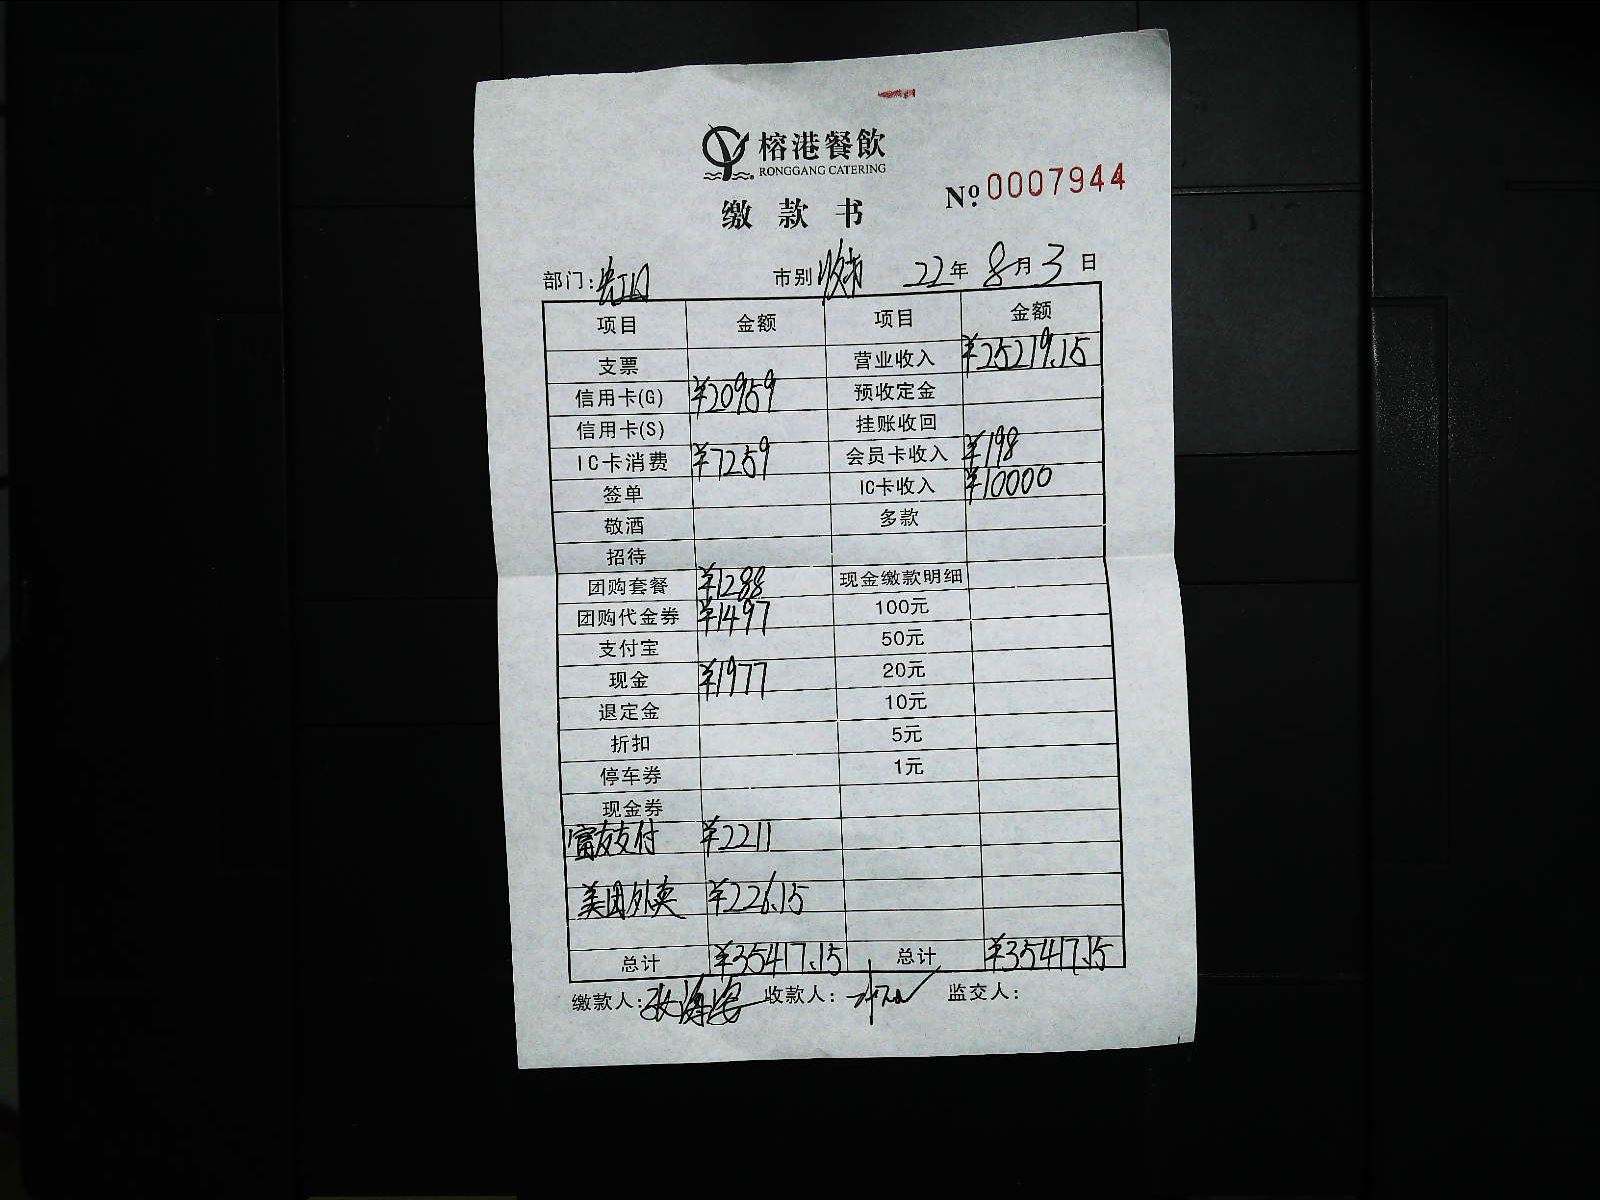 榕港餐飲
RONGGANG CATERING
No 0007944
缴款书
部门: 市别 收市 22年 8月 3日
项目 金额 项目 金额
支票 营业收入 ¥25219.15
信用卡(G) ¥20959 预收定金
信用卡(S) 挂账收回
IC卡消费 ¥7259 会员卡收入 ¥198
签单 IC卡收入 ¥10000
敬酒 多款
招待
团购套餐 ¥1288 现金缴款明细
团购代金券 ¥1497 100元
支付宝 50元
现金 ¥1977 20元
退定金 10元
折扣 5元
停车券 1元
现金券
富友支付 ¥2211
美团外卖 ¥226.15
总计 ¥35417.15 总计 ¥35417.15
缴款人: 收款人: 监交人: